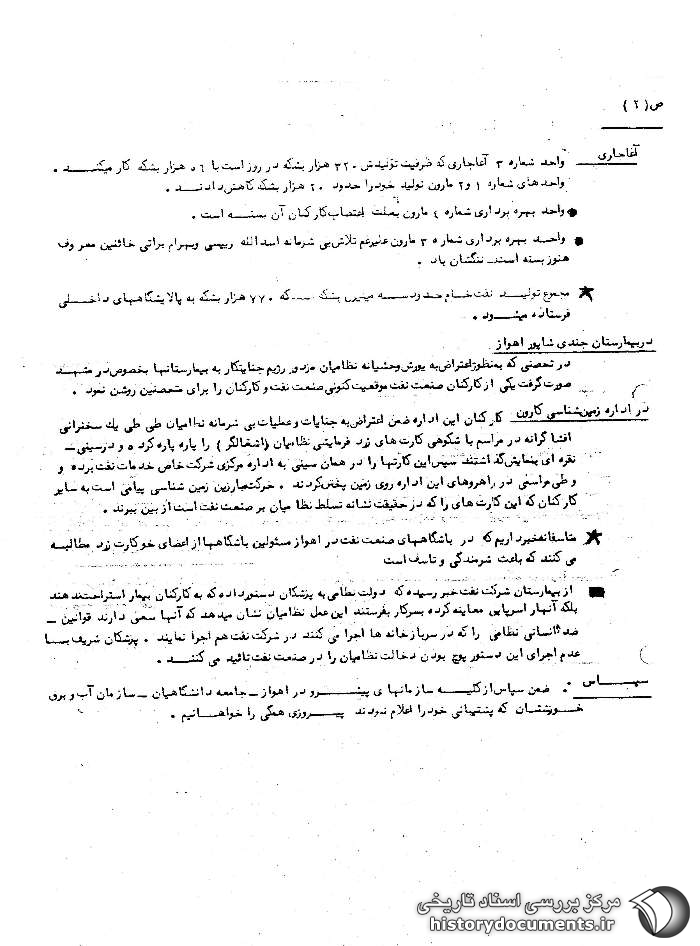 ص( ۲ )
آغاجاری واحد شماره ۳ آغاجاری که ظرفیت تولیدش ۳۲۰ هزار بشکه در روز است با ۵۶ هزار بشکه کار میکند .
واحد های شماره ۱ و ۲ مارون تولید خود را حدود ۲۰ هزار بشکه کاهش دادند .
● واحد بهره برداری شماره ٤ مارون بعلت اعتصاب کارکنان آن بسته است .
● واحد بهره برداری شماره ۳ مارون علیرغم تلاش بی شرمانه اسدالله رییسی وبهرام براتی خائنین معروف
هنوز بسته است ـ ننگشان باد .
★ مجموع تولید نفت خام حدود سه میلیون بشکه که ۷۷۰ هزار بشکه به پالایشگاههای داخلی
فرستاده میشود .
در بیمارستان جندی شاپور اهواز
در تحصنی که به منظور اعتراض به یورش وحشیانه نظامیان مزدور رژیم جنایتکار به بیمارستانها بخصوص در مشهد
صورت گرفت یکی از کارکنان صنعت نفت موقعیت کنونی صنعت نفت و کارکنان را برای متحصنین روشن نمود .
در اداره زمین شناسی کارون کارکنان این اداره ضمن اعتراض به جنایات و عملیات بی شرمانه نظامیان طی طی یك سخنرانی
افشا گرانه در مراسم با شکوهی کارت های زرد فرمایشی نظامیان (اشغالگر ) را پاره پاره کرده و در سینی ـ
نقره ای بنمایش گذاشتند سپس این کارتها را در همان سینی به اداره مرکزی شرکت خاص خدمات نفت برده و
و طی مراسمی در راهروهای این اداره روی زمین پخش کردند . حرکت مبارزین زمین شناسی پیامی است به سایر
کارکنان که این کارت های را که در حقیقت نشانه تسلط نظامیان بر صنعت نفت است از بین ببرند .
★ متاسفانه خبر داریم که در باشگاههای صنعت نفت در اهواز مسئولین باشگاهها از اعضای خو کارت زرد مطالبه
می کنند که باعث شرمندگی و تاسف است
■ از بیمارستان شرکت نفت خبر رسیده که دولت نظامی به پزشکان دستور داده که به کارکنان بیمار استراحت ندهند
بلکه آنها را سرپایی معاینه کرده بسر کار بفرستند این عمل نظامیان نشان میدهد که آنها سعی دارند قوانین ـ
ضد انسانی نظامی را که در سربازخانه ها اجرا می کنند در شرکت نفت هم اجرا نمایند . پزشکان شریف بسا
عدم اجرای این دستور پوچ بودن دخالت نظامیان را در صنعت نفت تائید می کنند .
سپاس . ضمن سپاس از کلیه سازمانهای پیشرو در اهواز ـ جامعه دانشگاهیان ـ سازمان آب و برق
خوزستان که پشتیبانی خود را اعلام نمودند پیروزی همگی را خواهانیم .
مرکز بررسی اسناد تاریخی
historydocuments.ir